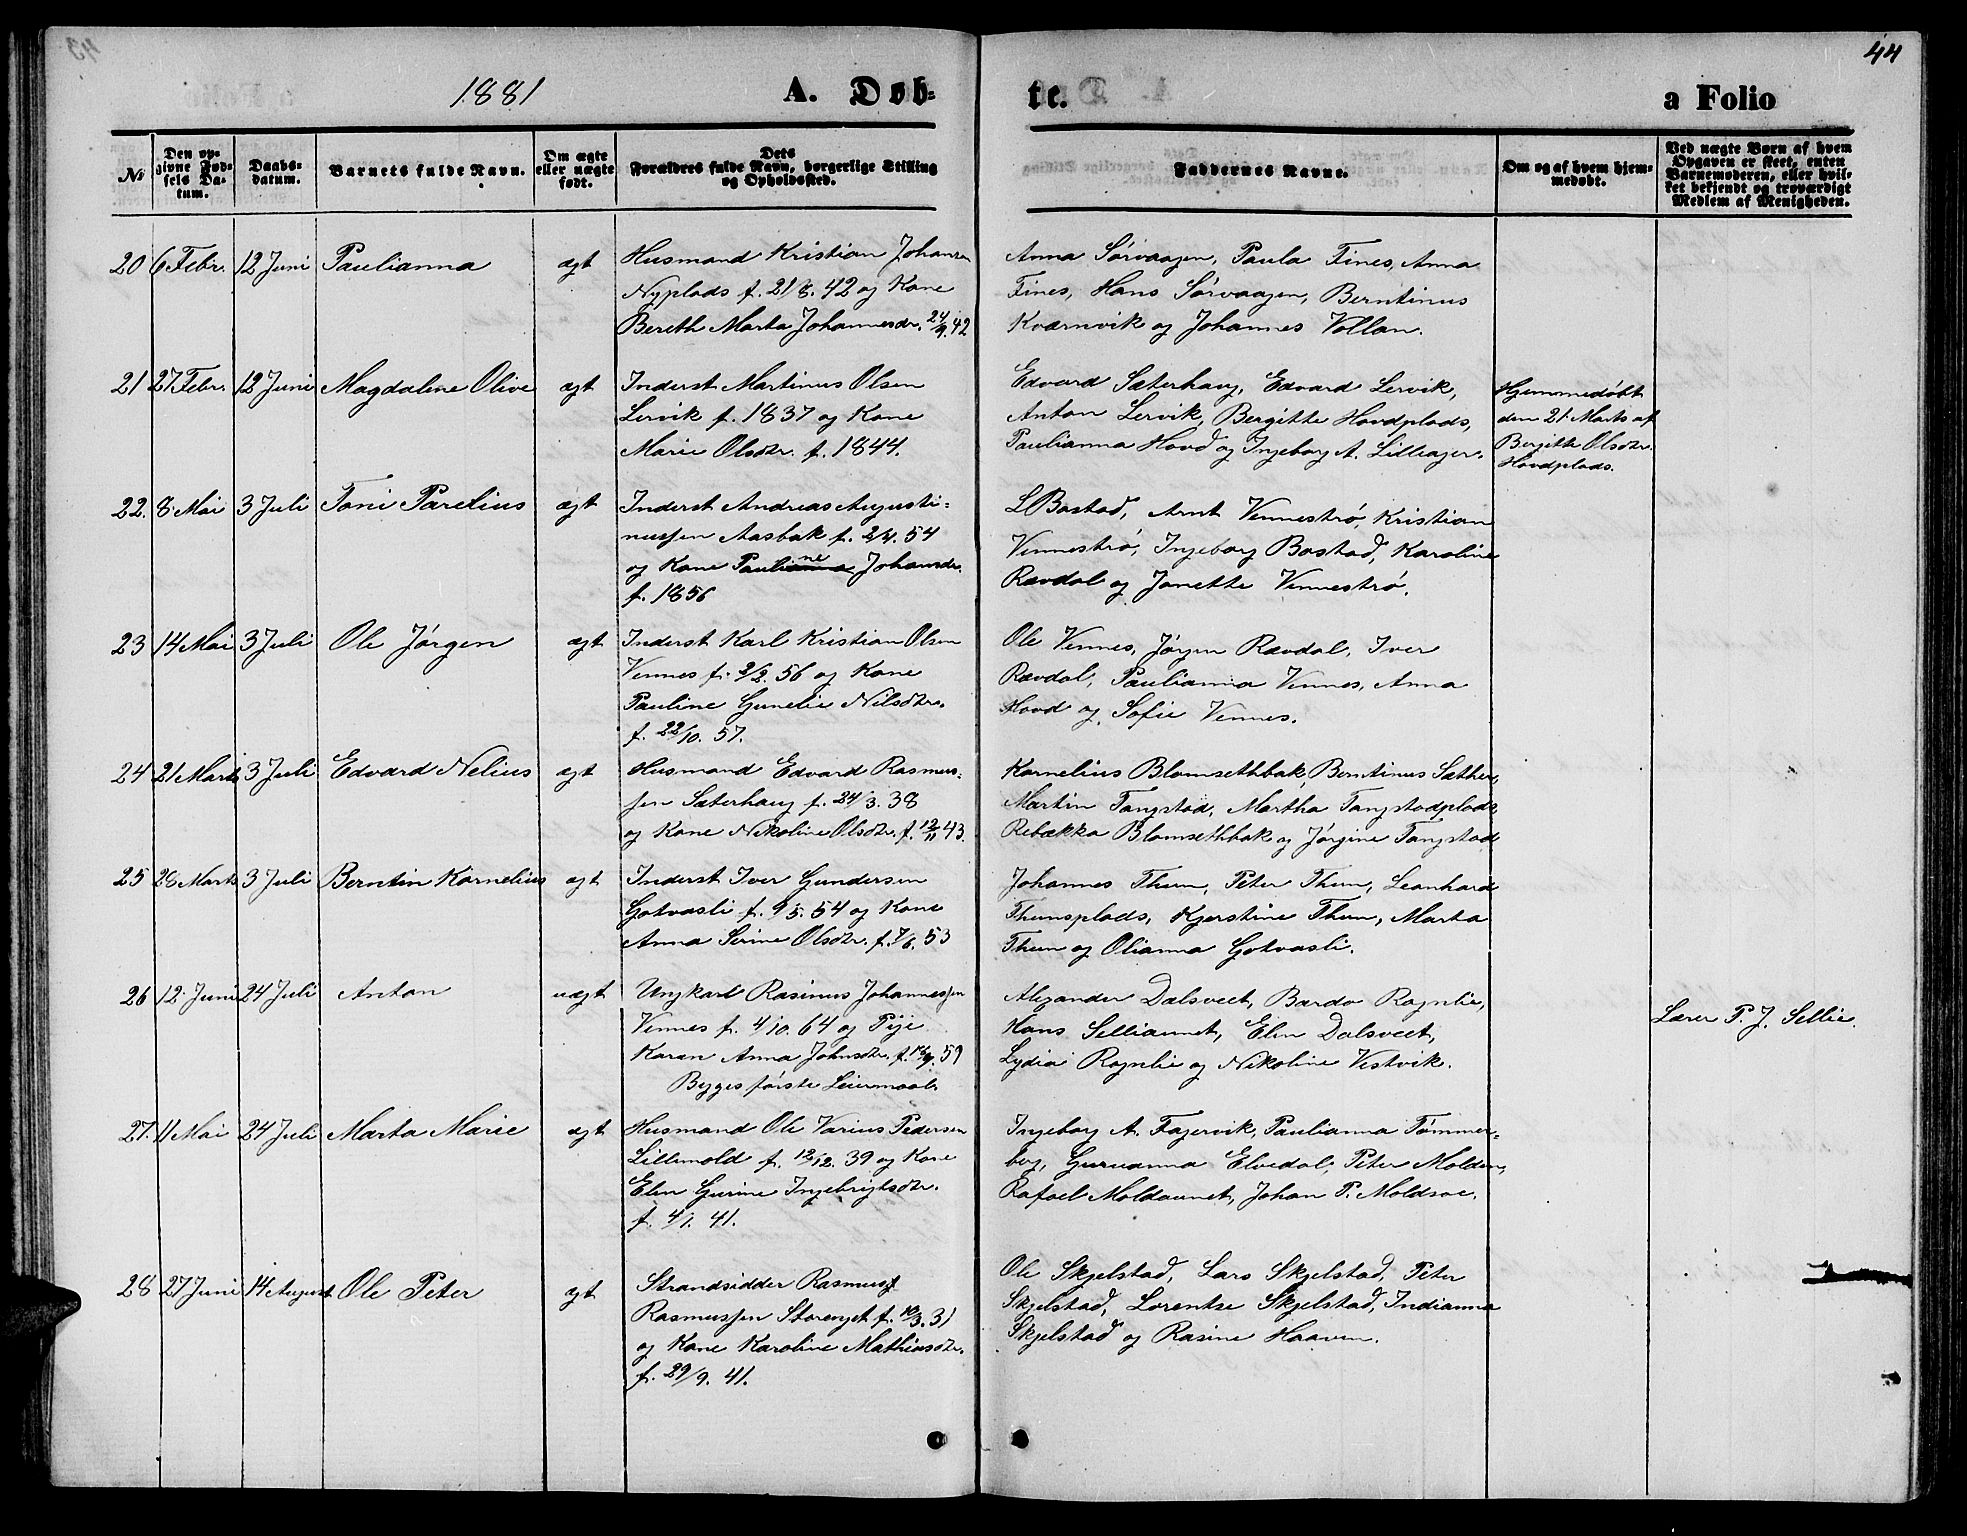 44
1881 A. Døb-
te. a Folio
№
Den op-
givne Fød-
sels Da-
tum.
Daabs-
datum.
Barnets fulde Navn.
Om ægte
eller uægte
født.
Dets
Forældres fulde Navn, borgerlige Stilling
og Opholdssted.
Faddernes Navne.
Om og af hvem hjem-
medøbt.
Ved uægte Børn af hvem
Opgaven er skeet, enten
Barnemoderen, eller hvil-
ket bekjendt og troværdigt
Medlem af Menigheden.
20 6 Febr. 12 Juni Paulianna ægt
Husmand Kristian Johansen
Nyplads f. 21/8. 42 og Kone
Bereth Marta Johannesdr. 24/9. 42
Anna Sørvaagen, Paula Fines, Anna
Fines, Hans Sørvaagen, Berntinus
Kværnvik og Johannes Vollan.
21 27 Febr. 12 Juni Magdaline Olive ægt
Inderst Martinus Olsen
Lervik f. 1837 og Kone
Marie Olsdtr. f. 1844.
Edvard Sæterhaug, Edvard Lervik,
Anton Lervik, Bergitte Hovdplads,
Paulianna Hovd og Ingeborg A. Lilleager.
Hjemmedøbt
den 21 Marts af
Bergitte Olsdtr.
Hovdplads.
22. 8 Mai 3 Juli Toni Parelius ægt
Inderst Andreas Augusti-
nussen Aasbak f. 2/4. 54
og Kone Pauliane Johansdr.
f. 1856
L Bostad, Arnt Vennestrø, Kristian
Vennestrø, Ingeborg Bostad, Karoline
Rævdal og Jonette Vennestrø.
23 14 Mai 3 Juli Ole Jørgen ægt
Inderst Karl Kristian Olsen
Vennes f. 2/2. 56 og Kone
Pauline Gunelie Nilsdtr.
f. 22/10. 57.
Ole Vennes, Jørgen Rævdal, Iver
Rævdal, Paulianna Vennes, Anna
Hovd og Sofie Vennes.
24 21 Marts 3 Juli Edvard Nelius ægt
Husmand Edvard Rasmus-
sen Sæterhaug f. 24/3. 38
og Kone Nikoline Olsdtr. f. 12/11 43.
Kornelius Blomsethbak, Berntinus Sæther,
Martin Tangstad, Martha Tangstadplads,
Rebækka Blomsethbak og Jørgine Tangstad
25 28 Marts 3 Juli Berntin Kornelius ægt
Inderst Iver Gundersen
Gotvasli f. 9/5. 54 og Kone
Anna Serine Olsdtr. f. 7/6. 53
Johannes Thun, Peter Thun, Leonhard
Thunsplads, Kjerstine Thun, Marta
Thun og Olianna Gotvasli.
26 12 Juni 24 Juli Anton uægt
Ungkarl Rasinus Johannessen
Vennes f. 4/10. 64 og Pige
Karen Anna Johnsdtr. f. 59
Begges første Leiermaal.
Alexander Dalsveet, Bardo Rognlie,
Hans Selliaunet, Elen Dalsveet,
Lydia Rognlie og Nikoline Vestvik.
Lærer P. J. Sellie.
27. 11 Mai 24 Juli Marta Marie ægt
Husmand Ole Varius Pedersen
Lillemold f. 12/12. 39 og Kone
Elen Gurine Ingebrigtsdtr.
f. 4/1. 41.
Ingeborg A. Fagervik, Paulianna Tømmer-
berg, Guruanna Elvedal, Peter Molden,
Rafael Moldaunet, Johan P. Moldsve.
28 27 Juni 14 August Ole Peter ægt
Strandsidder Rasmus
Rasmussen Storenget f. 10/3. 31
og Kone Karoline Mathiasdtr.
f. 29/9. 41.
Ole Skjelstad, Lars Skjelstad, Peter
Skjelstad, Lorentse Skjelstad, Indianna
Skjelstad og Rasine Haaven.